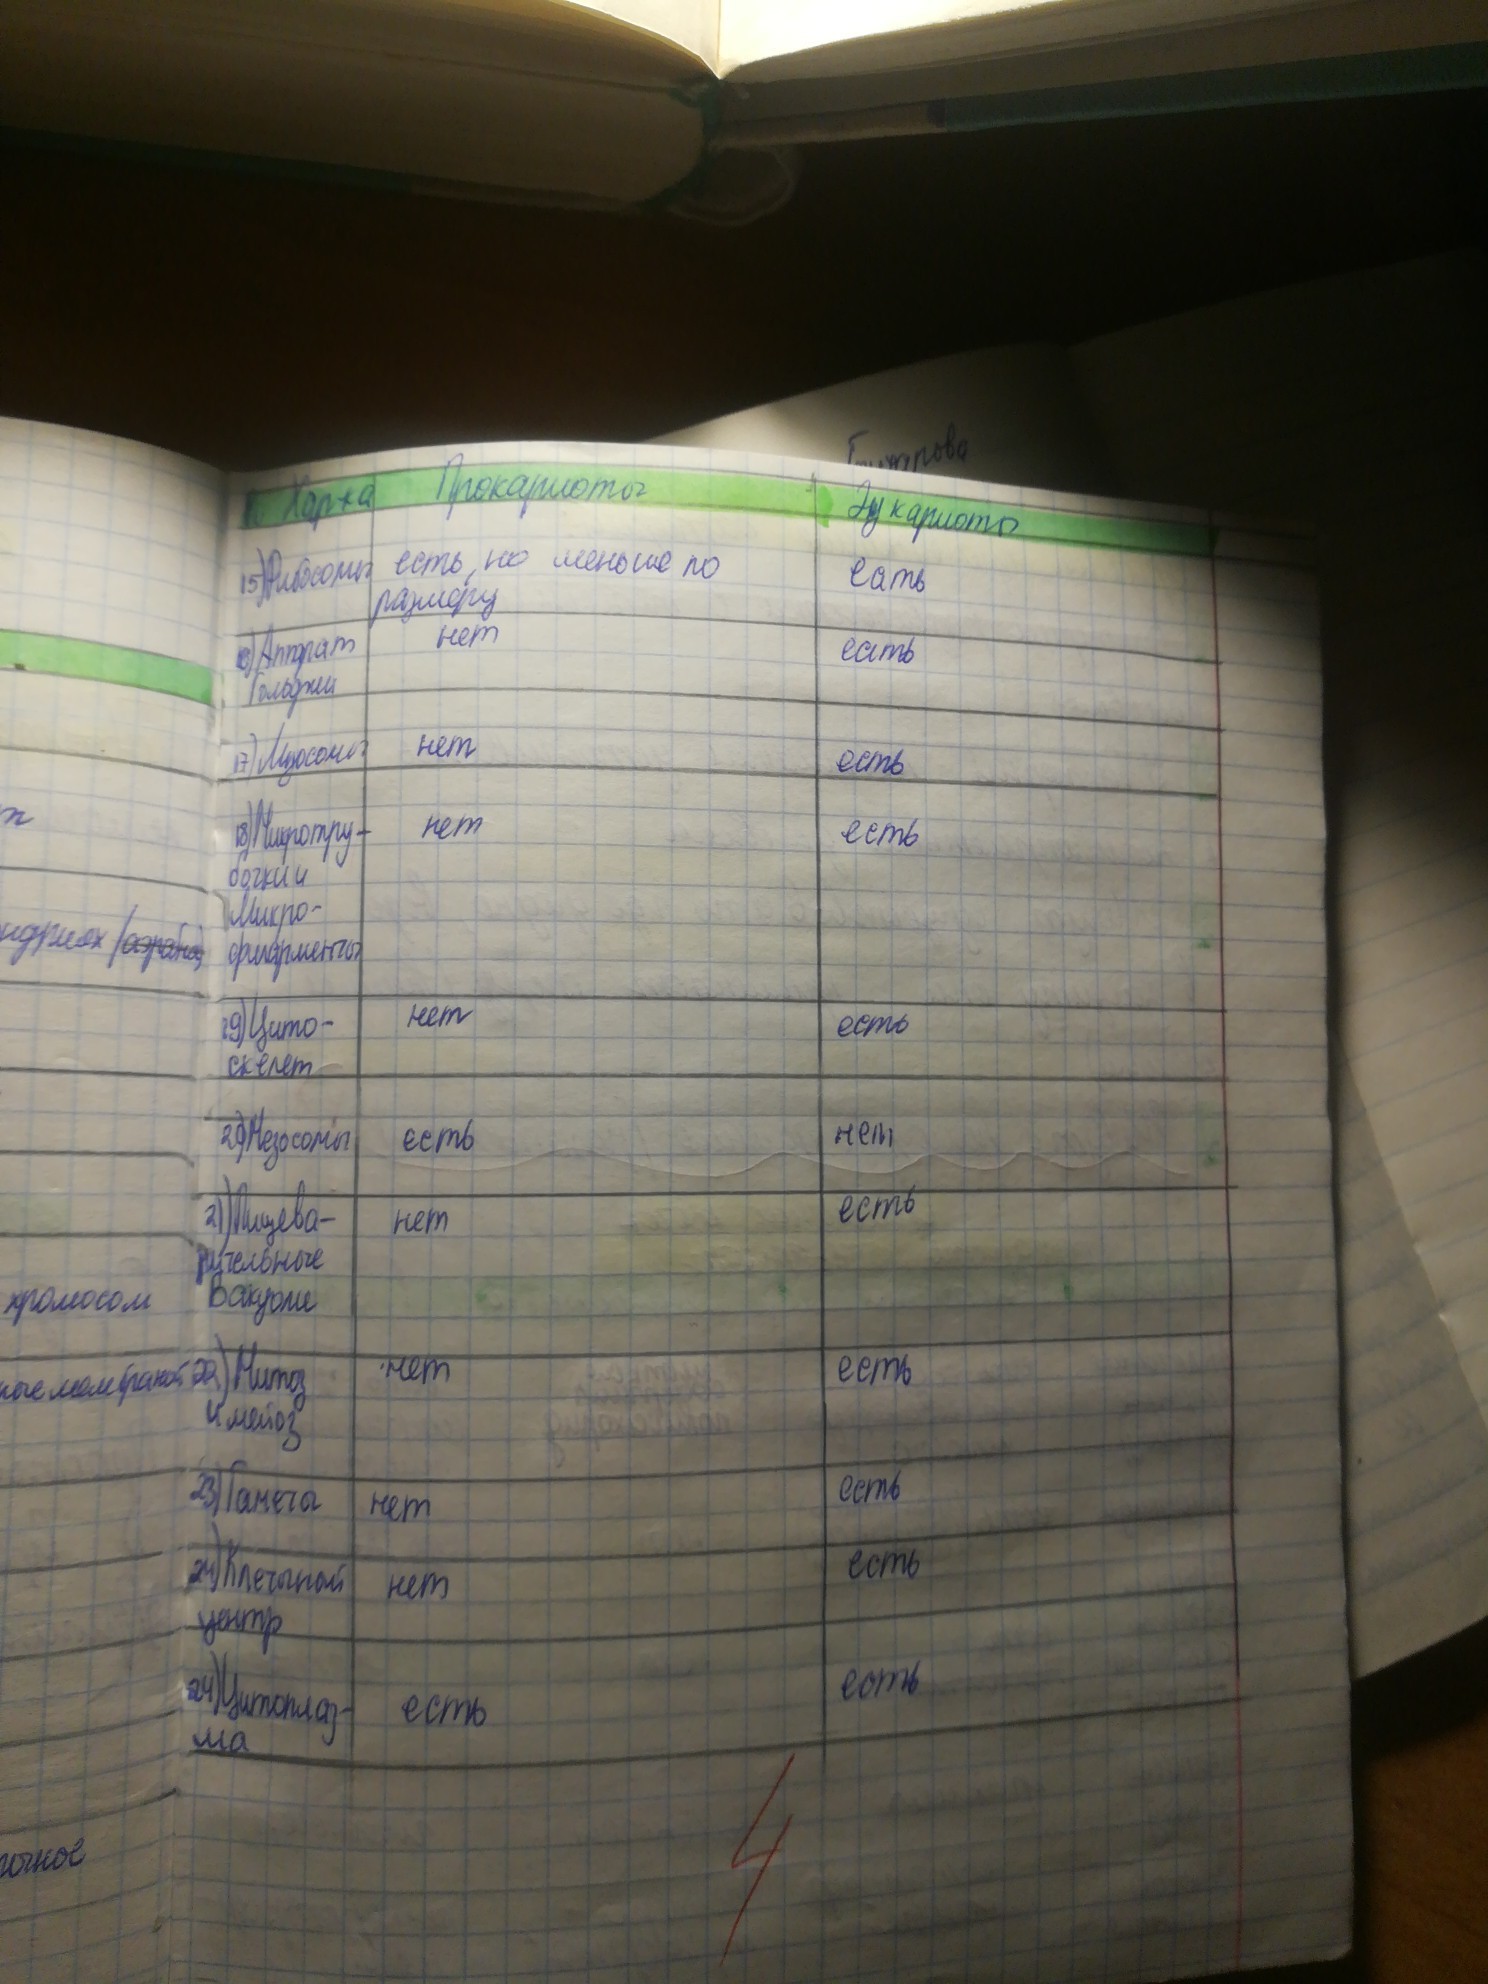 Гончарова
Хар-ка Прокариоты Эукариоты
15) Рибосомы есть, но меньше по есть
размеру
16) Аппарат нет есть
Гольджи
17) Лизосомы нет есть
18) Микротру- нет есть
бочки и
Микро-
филаменты
19) Цито- нет есть
скелет
20) Мезосомы есть нет
21) Пищева- нет есть
рительные
вакуоли
хромосом
22) Митоз нет есть
и мейоз
23) Гаметы нет есть
24) Клеточный нет есть
центр
24) Цитоплаз- есть есть
ма
4